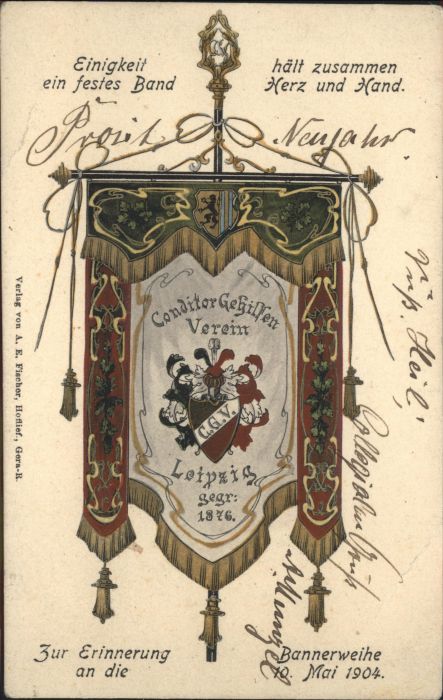 Einigkeit hält zusammen
ein festes Band Herz und Hand.
Prosit Neujahr
Conditor Gehilfen
Verein
C.G.V.
Leipzig
gegr:
1876.
Verlag von A. E. Fischer, Hoflief., Gera-R.
Heil,
Zur Erinnerung Bannerweihe
an die 10. Mai 1904.